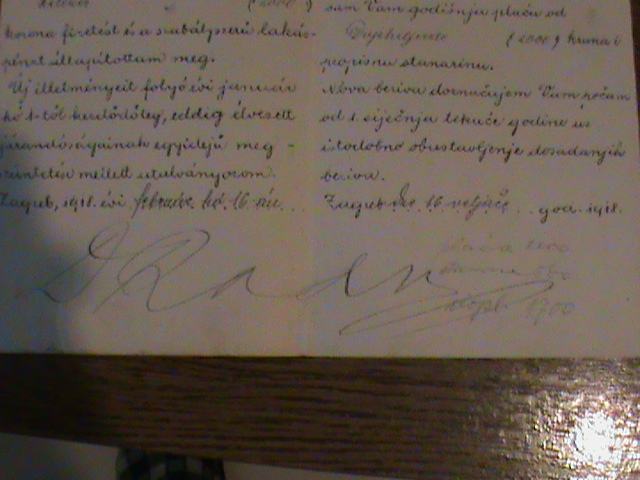 (2000)
korona fizetést és a szabályszerű lakás-
pénzt állapítottam meg.
Új illetményeit folyó évi január
hó 1-től kezdődőleg, eddig élvezett
járandóságainak egyidejű meg-
szüntetése mellett utalványozom.
Zagreb, 1918. évi február hó 16-án
sam Vam godišnju plaću od
(2000) kruna i
propisnu stanarinu.
Nova beriva doznačujem Vam počam
od 1. siječnja tekuće godine uz
istodobno obustavljenje dosadanjih
beriva.
Zagreb, 16 veljače god. 1918.
plaća 2000